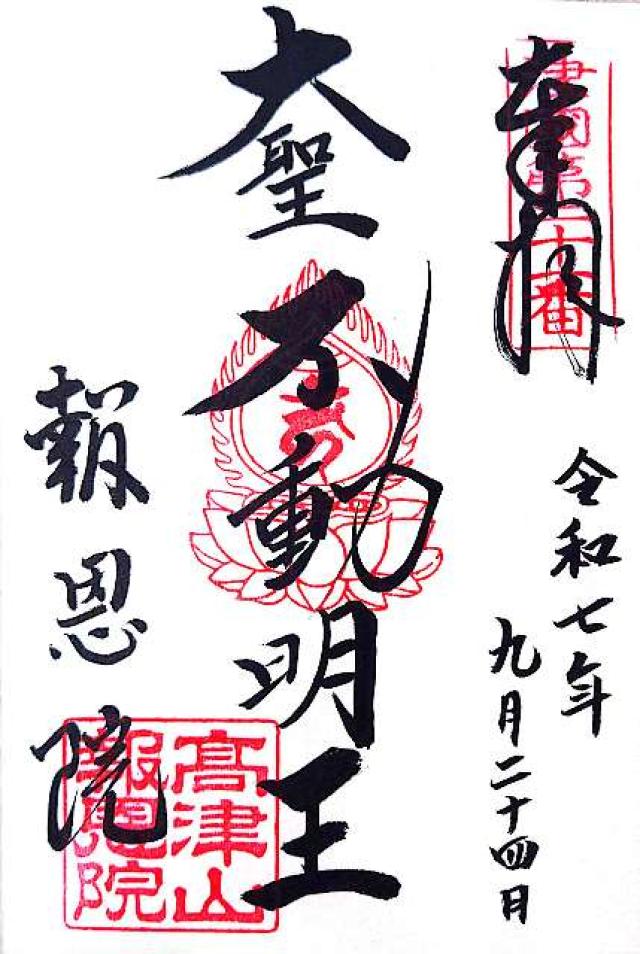 奉拝
摂国第二十番
令和七年
九月二十四日
大聖不動明王
報恩院
高津山
報恩院